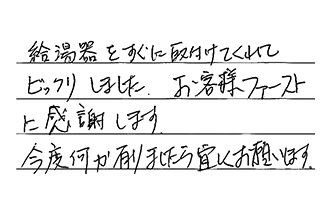 給湯器をすぐに取付けてくれて
ビックリしました. お客様ファースト
に感謝します.
今度何か有りましたら宜しくお願います.